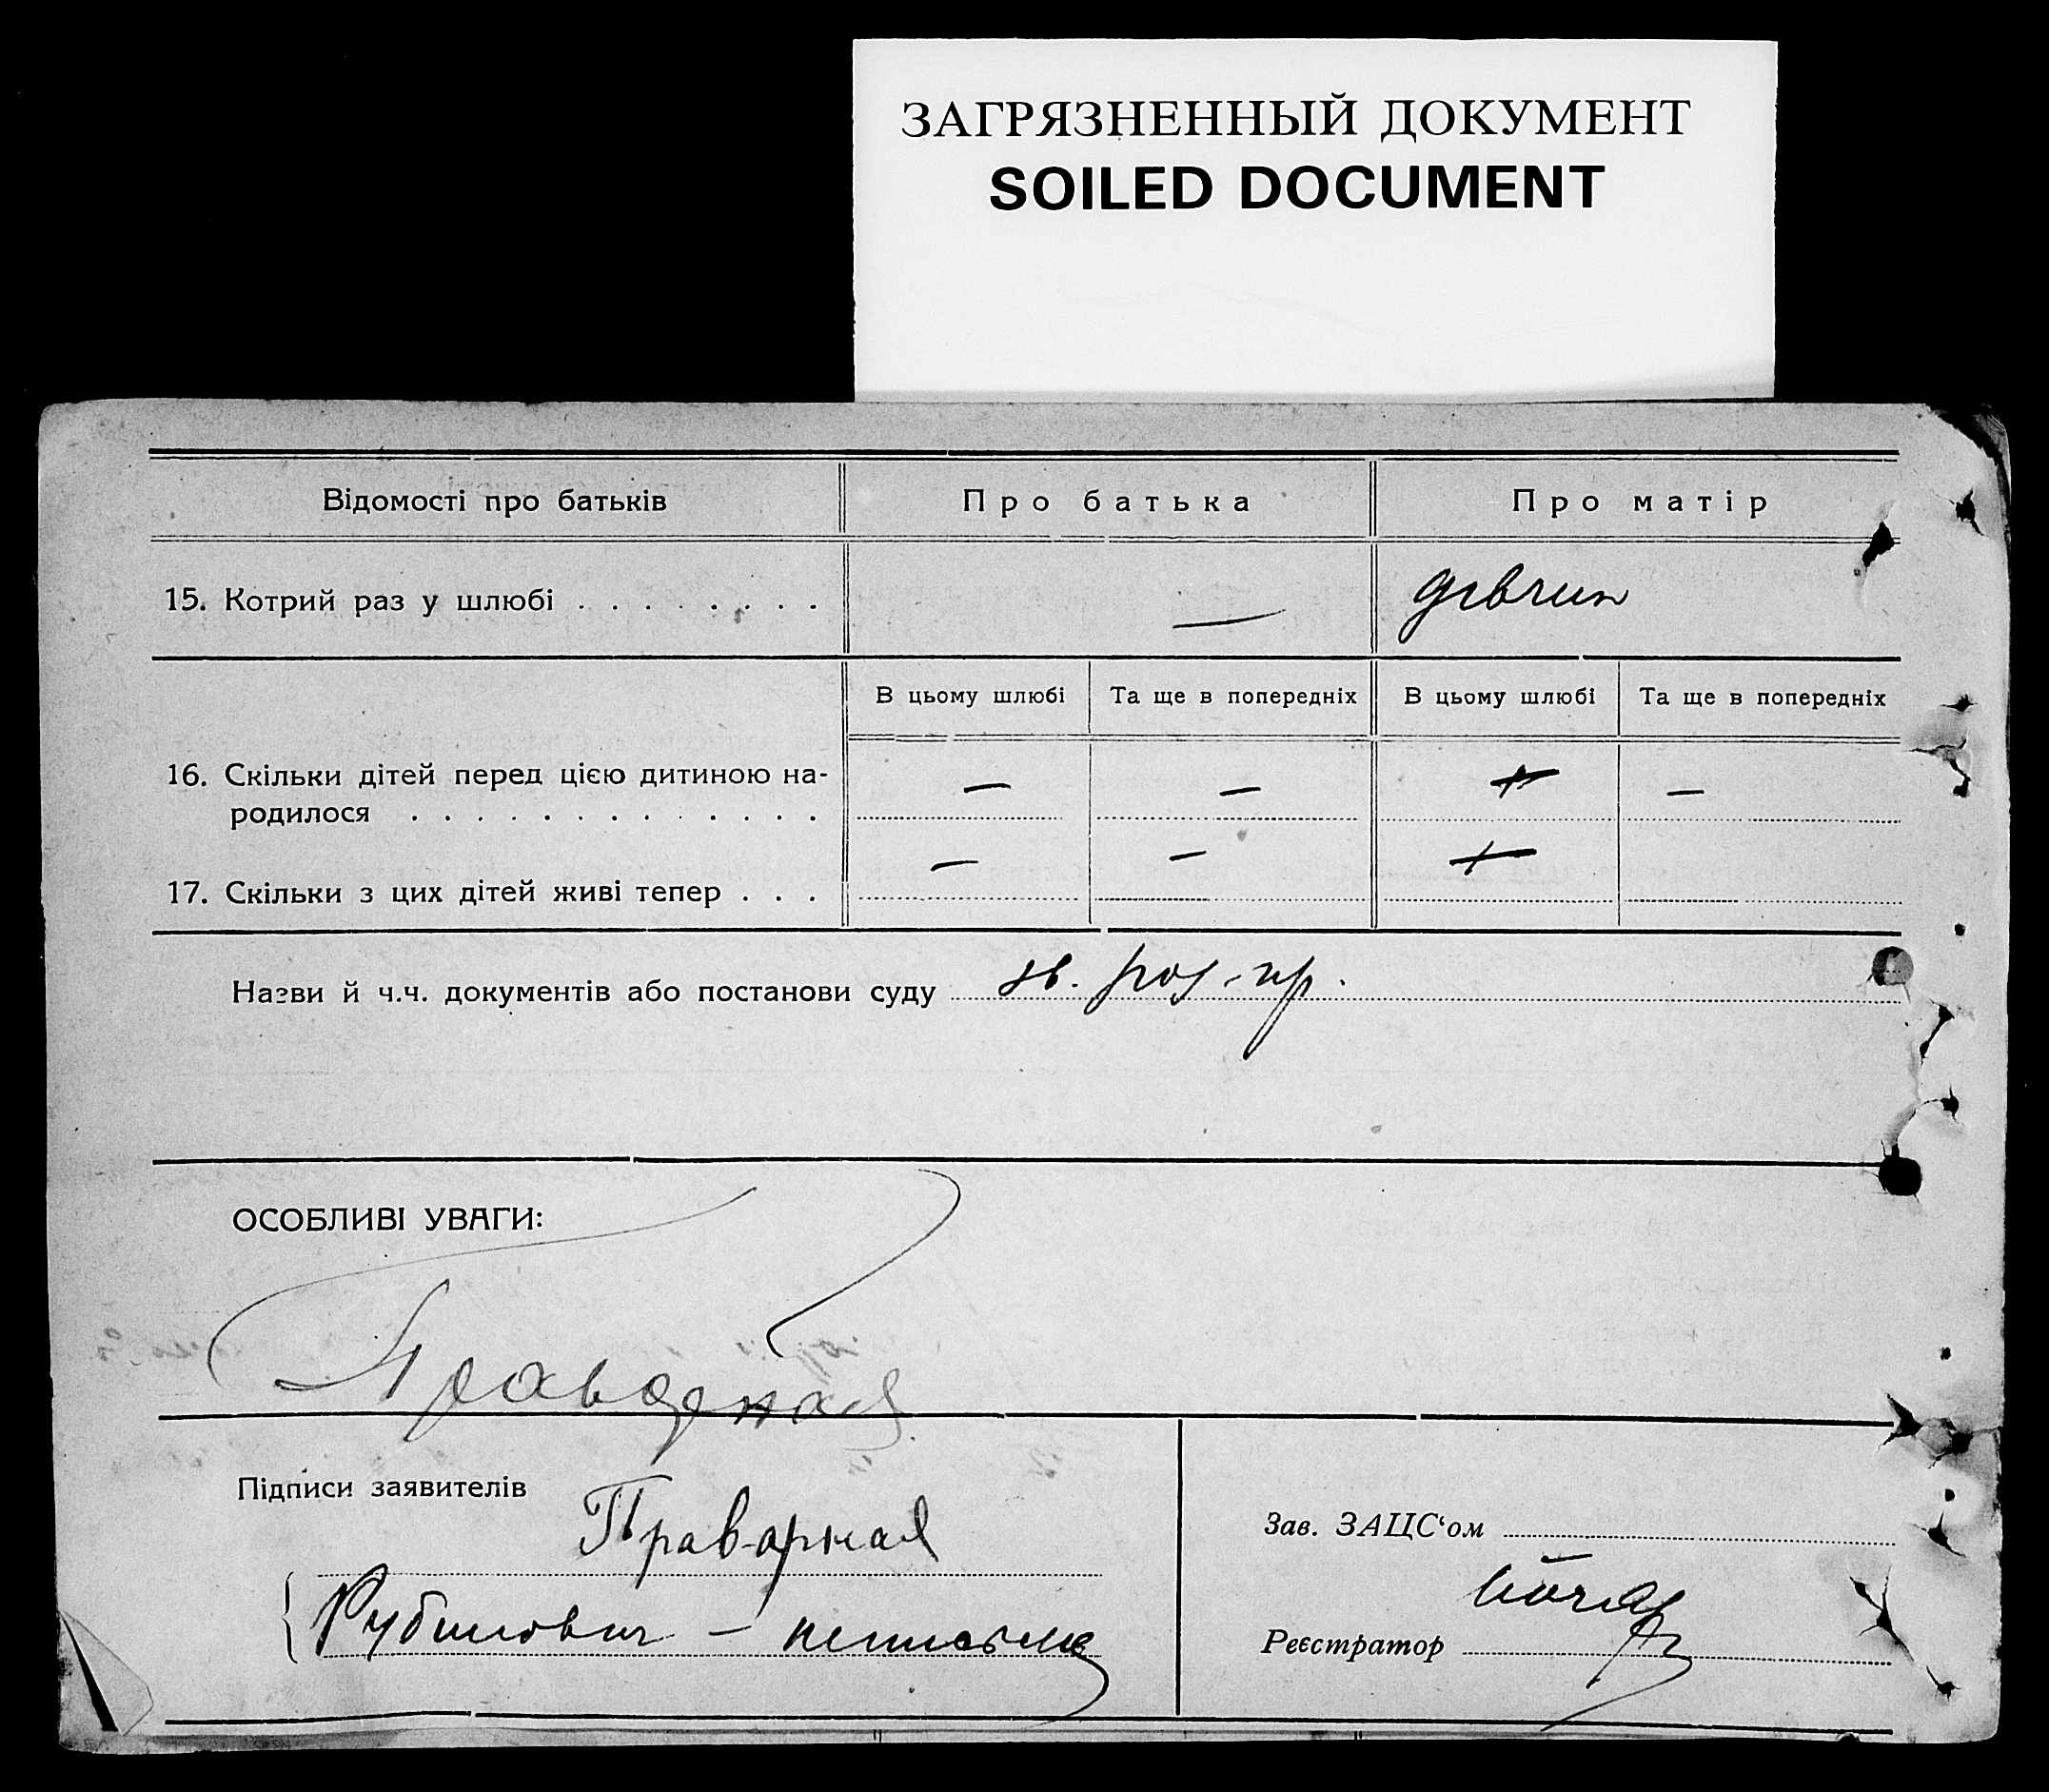 ЗАГРЯЗНЕННЫЙ ДОКУМЕНТ
SOILED DOCUMENT
Відомості про батьків
Про батька
Про матір
15. Котрий раз у шлюбі . . . . . . . .
—
В цьому шлюбі
Та ще в попередніх
В цьому шлюбі
Та ще в попередніх
16. Скільки дітей перед цією дитиною на-
родилося . . . . . . . . . . . . .
— — —
17. Скільки з цих дітей живі тепер . . .
— —
Назви й ч.ч. документів або постанови суду
ОСОБЛИВІ УВАГИ:
Підписи заявителів
Рубинович —
Зав. ЗАЦС‘ом
Реєстратор